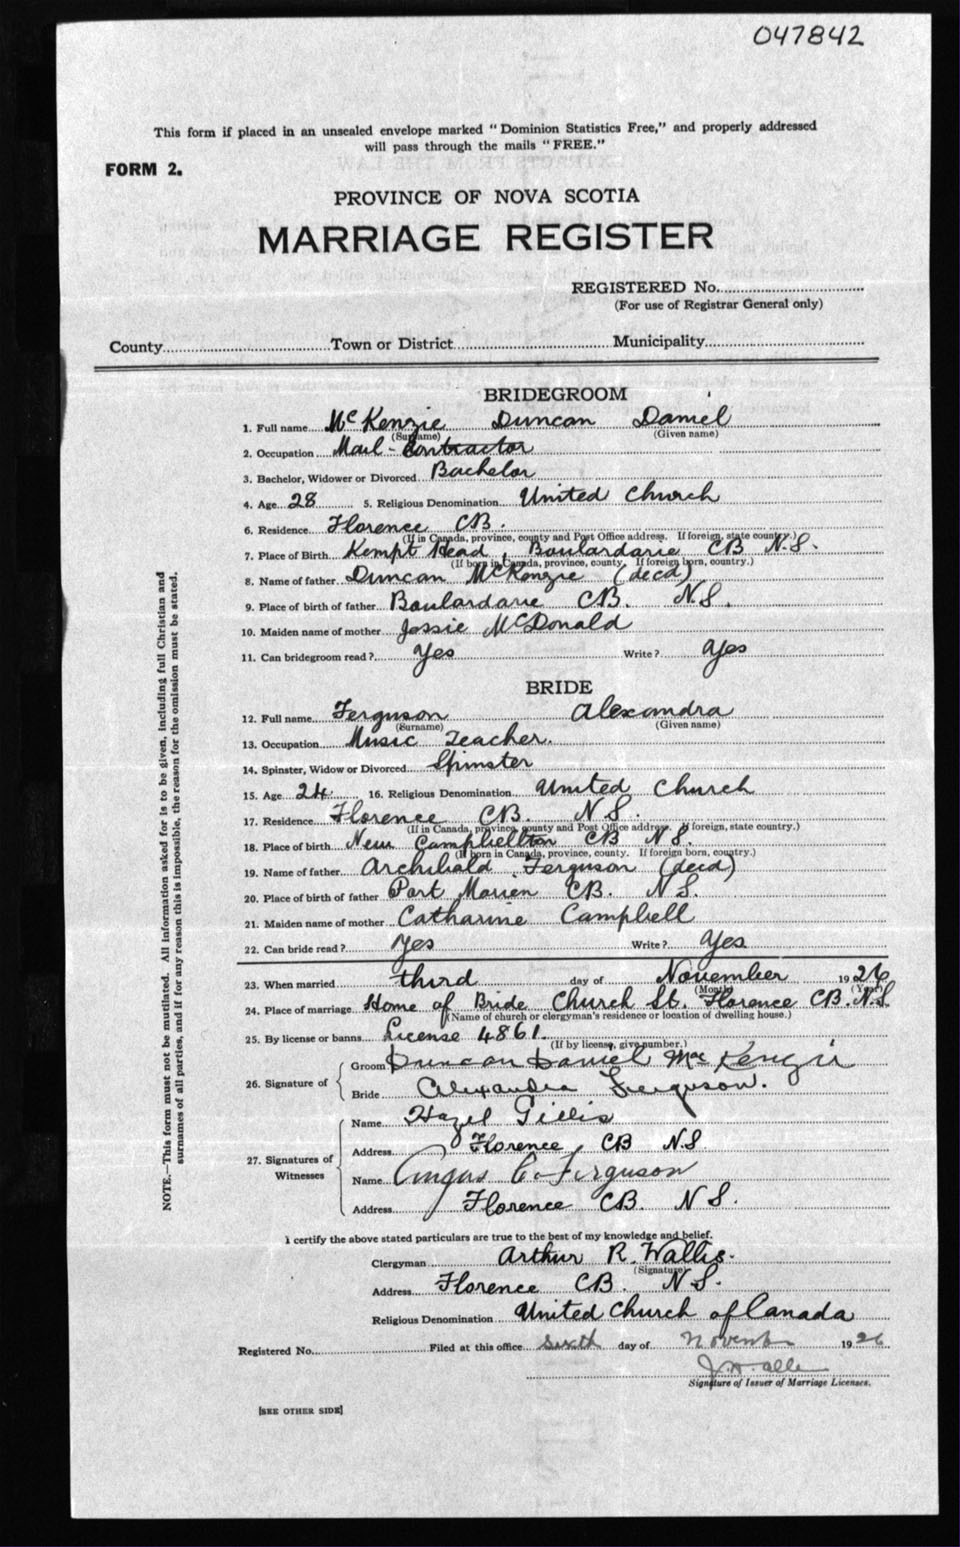 047842
This form if placed in an unsealed envelope marked "Dominion Statistics Free," and properly addressed
will pass through the mails "FREE."
FORM 2.
PROVINCE OF NOVA SCOTIA
MARRIAGE REGISTER
REGISTERED No.
(For use of Registrar General only)
County Town or District Municipality
BRIDEGROOM
1. Full name McKenzie Duncan Daniel
(Surname) (Given name)
2. Occupation Mail-Contractor
3. Bachelor, Widower or Divorced Bachelor
4. Age 28 5. Religious Denomination United Church
6. Residence Florence CB.
(If in Canada, province, county and Post Office address. If foreign, state country.)
7. Place of Birth Kempt Head, Boulardarie CB N.S.
(If born in Canada, province, county. If foreign born, country.)
8. Name of father Duncan McKenzie (decd)
9. Place of birth of father Boulardarie CB. N.S.
10. Maiden name of mother Jessie McDonald
11. Can bridegroom read? Yes Write? Yes
BRIDE
12. Full name Ferguson Alexandra
(Surname) (Given name)
13. Occupation Music Teacher.
14. Spinster, Widow or Divorced Spinster
15. Age 24 16. Religious Denomination United Church
17. Residence Florence CB. N S.
(If in Canada, province, county and Post Office address. If foreign, state country.)
18. Place of birth New Campbellton CB N S.
(If born in Canada, province, county. If foreign born, country.)
19. Name of father Archibald Ferguson (decd)
20. Place of birth of father Port Morien CB. N S
21. Maiden name of mother Catharine Campbell
22. Can bride read? Yes Write? Yes
23. When married third day of November 1926
(Month) (Year)
24. Place of marriage Home of Bride Church St. Florence CB. N.S.
(Name of church or clergyman's residence or location of dwelling house.)
25. By license or banns License 4861.
(If by license, give number.)
26. Signature of
Groom Duncan Daniel MacKenzie
Bride Alexandra Ferguson.
27. Signatures of Witnesses
Name Hazel Gillis
Address Florence CB N.S
Name Angus C. Ferguson
Address Florence CB. N S.
I certify the above stated particulars are true to the best of my knowledge and belief.
Clergyman Arthur R. Wallis.
(Signature)
Address Florence CB. N.S.
Religious Denomination United Church of Canada
Registered No. Filed at this office sixth day of 1926
Signature of Issuer of Marriage Licenses.
[SEE OTHER SIDE]
NOTE.—This form must not be mutilated. All information asked for is to be given, including full Christian and
surnames of all parties, and if for any reason this is impossible, the reason for the omission must be stated.